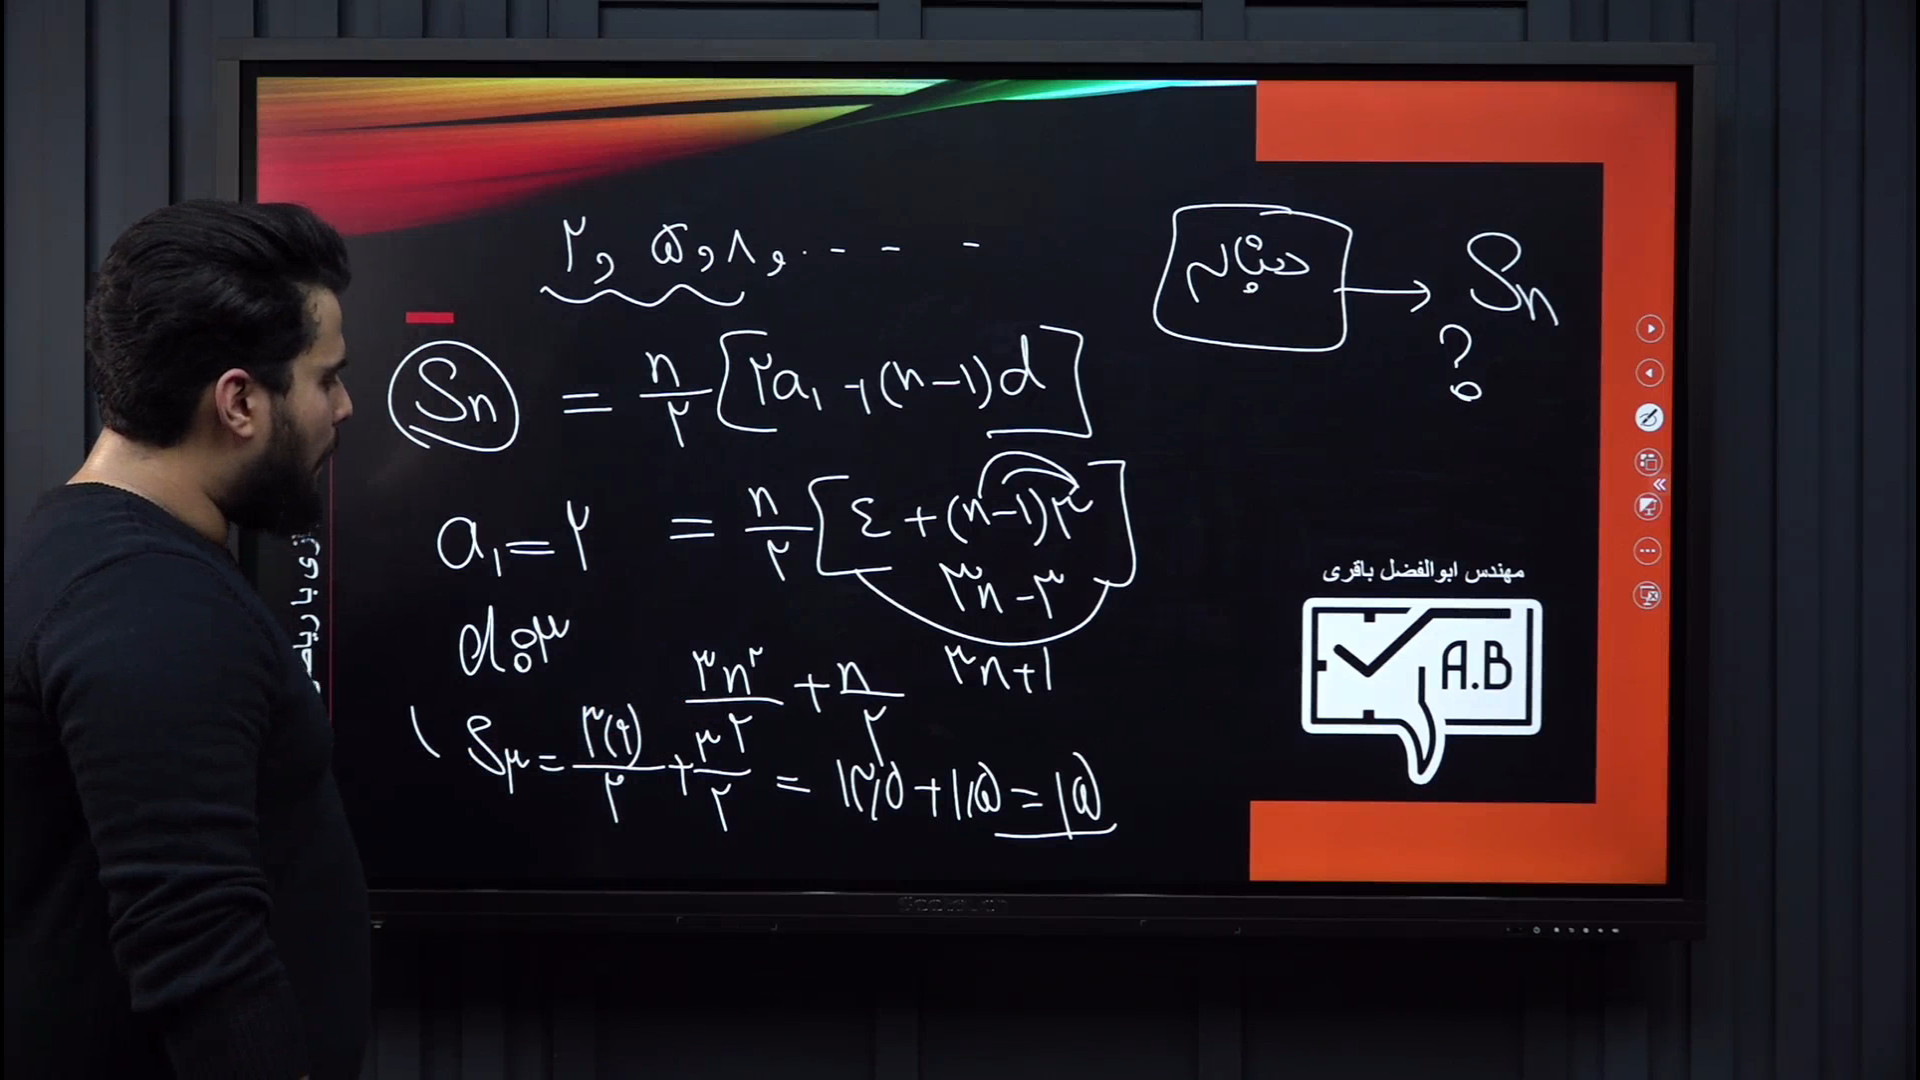 ۲ و ۵ و ۸ و . - - -
دنباله → Sn
?
Sn = n/۲ [۲a۱ + (n-۱)d]
a۱ = ۲ = n/۲ [٤ + (n-۱)۳]
۳n-۳
d: ۳
۳n² / ۲ + n / ۲
۳n+۱
S۳ = ۳(۹) / ۲ + ۳ / ۲ = ۱۳٫۵ + ۱٫۵ = ۱۵
مهندس ابوالفضل باقری
A.B